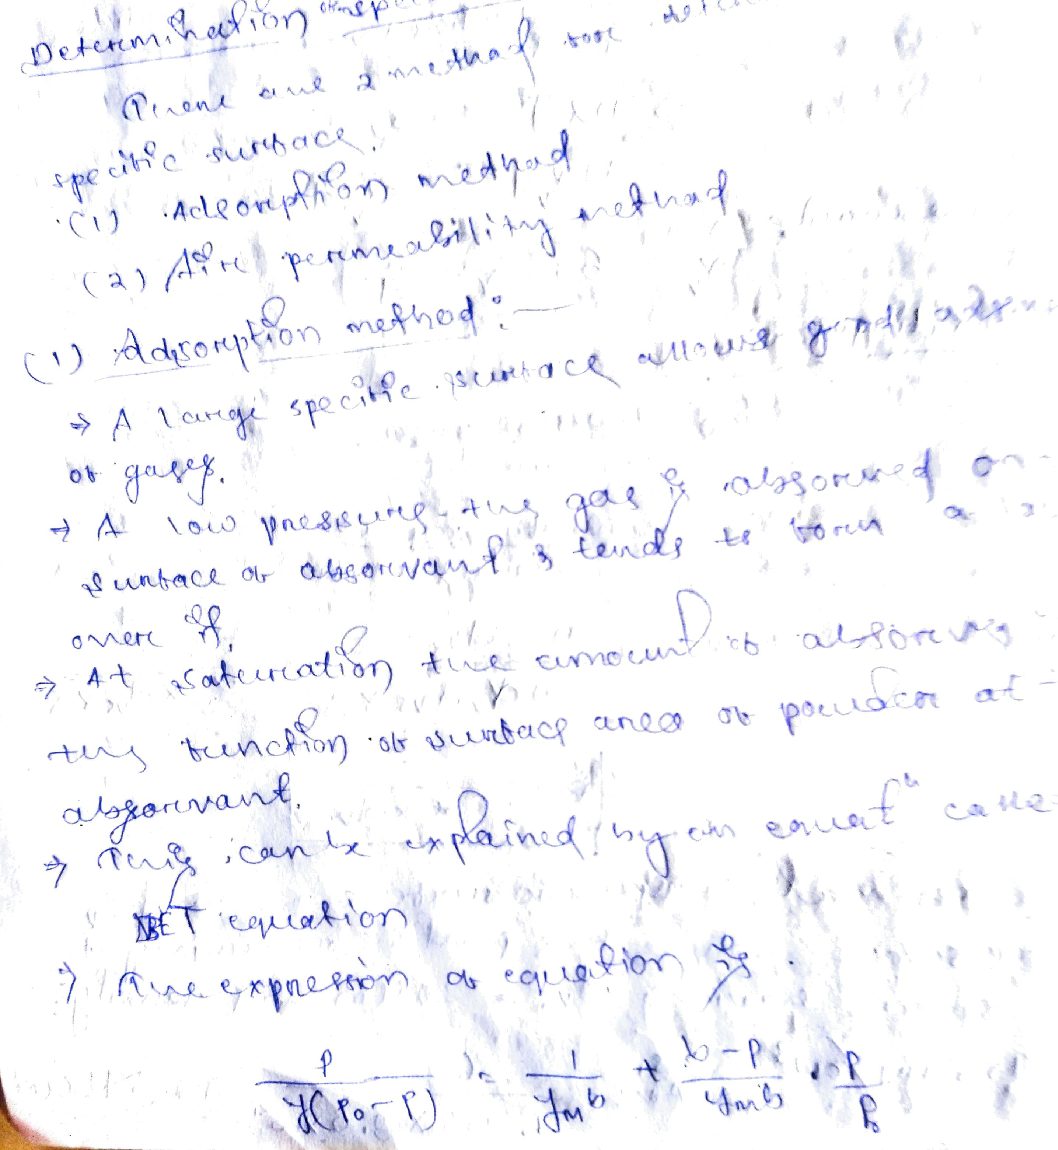 Determination
There are 2 method
specific surface.
(1) Adsorption method
(2) Air permeability method
(1) Adsorption method :—
→ A large specific surface allows
of gases.
→ A low pressure the gas is absorved on
surface of absorvant & tends to form a
over it.
→ At saturation the amount of
the function of surface area of powder
absorvant.
→ This can be explained by an equatⁿ
BET equation
→ The expression of equation is
P/y(P₀-P) = 1/yₘb + b-P/yₘb · P/P₀